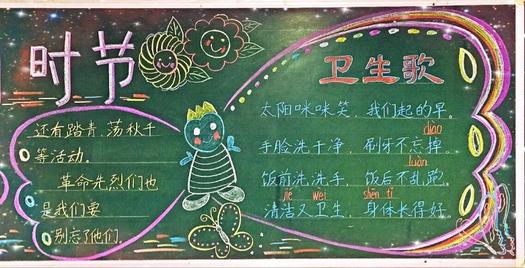 时节
还看踏青,荡秋千
等活动.
革命先烈们也
是我们要
别忘了他们.
卫生歌
太阳咪咪笑,我们起的早。
diào
手脸洗干净,刷牙不忘掉。
luàn
饭前洗洗手,饭后不乱跑,
jié wèi shēn tǐ
清洁又卫生,身体长得好.